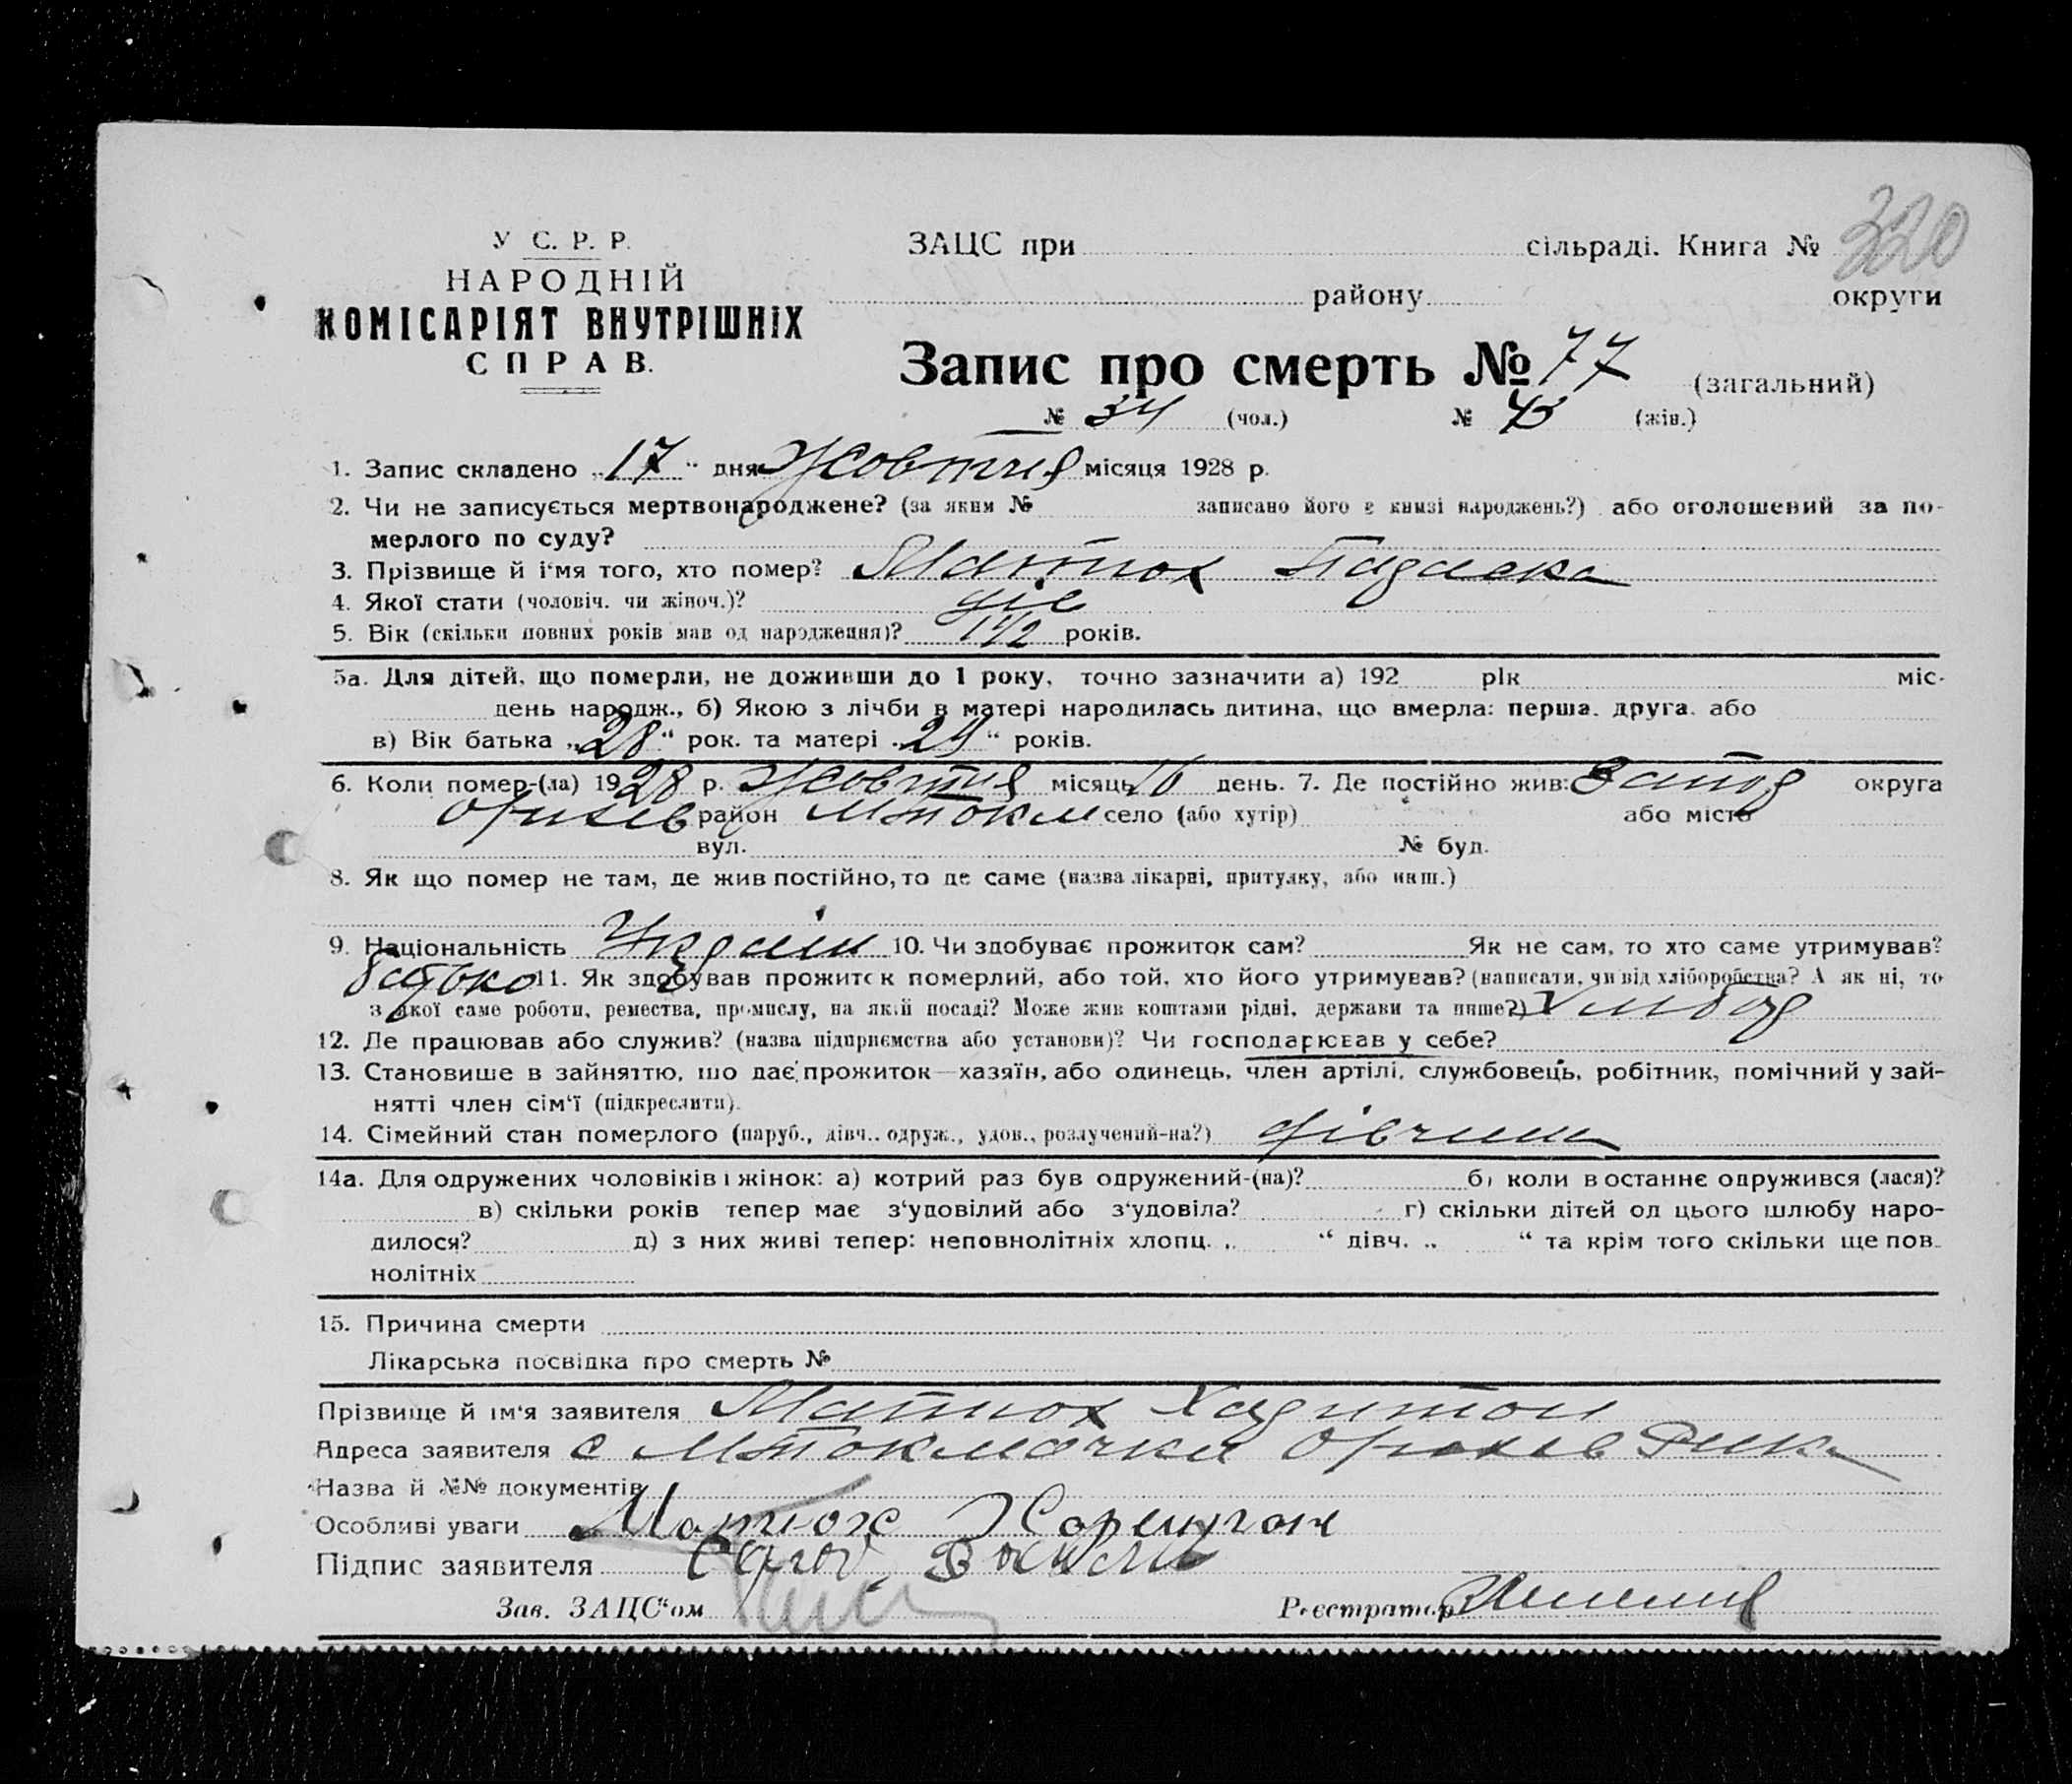 320
У С. Р. Р.
НАРОДНІЙ
КОМІСАРІЯТ ВНУТРІШНІХ
СПРАВ.
ЗАЦС при сільраді. Книга №
району округи
Запис про смерть № 77 (загальний)
№ 34 (чол.) № 43 (жін.)
1. Запис складено „17" дня Жовтня місяця 1928 р.
2. Чи не записується мертвонароджене? (за яким № записано його в книзі народжень?) або оголошений за по-
мерлого по суду?
3. Прізвище й і'мя того, хто помер? Матюх Параска
4. Якої стати (чоловіч. чи жіноч.)?
5. Вік (скільки повних років мав од народження)? 1 1/2 років.
5а. Для дітей, що померли, не доживши до 1 року, точно зазначити а) 192 рік міс-
день народж., б) Якою з лічби в матері народилась дитина, що вмерла: перша, друга, або
в) Вік батька „28" рок. та матері „29" років.
6. Коли помер-(ла) 1928 р. Жовтня місяць 16 день. 7. Де постійно жив: Запор округа
Оріхів район МТокм село (або хутір) або місто
вул. № буд.
8. Як що помер не там, де жив постійно, то де саме (назва лікарні, притулку, або инш.)
9. Національність Україн 10. Чи здобуває прожиток сам? Як не сам, то хто саме утримував?
батько 11. Як здобував прожиток померлий, або той, хто його утримував? (написати, чи від хліборобства? А як ні, то
з якої саме роботи, ремества, промислу, на якій посаді? Може жив коштами рідні, держави та инше?) Хлібор
12. Де працював або служив? (назва підприємства або установи)? Чи господарював у себе?
13. Становище в зайняттю, що дає прожиток—хазяїн, або одинець, член артілі, службовець, робітник, помічний у зай-
нятті член сім'ї (підкреслити).
14. Сімейний стан померлого (паруб., дівч., одруж., удов., розлучений-на?) дівчина
14а. Для одружених чоловіків і жінок: а) котрий раз був одружений-(на)? б) коли в останнє одружився (лася)?
в) скільки років тепер має з'удовілий або з'удовіла? г) скільки дітей од цього шлюбу наро-
дилося? д) з них живі тепер: неповнолітніх хлопц. „ " дівч. „ " та крім того скільки ще пов-
нолітніх
15. Причина смерти
Лікарська посвідка про смерть №
Прізвище й ім'я заявителя Матюх Харитон
Адреса заявителя с МТокмачка Оріхів Рика
Назва й №№ документів
Особливі уваги Матюх Харитон
Підпис заявителя
Зав. ЗАЦС'ом Реєстратор